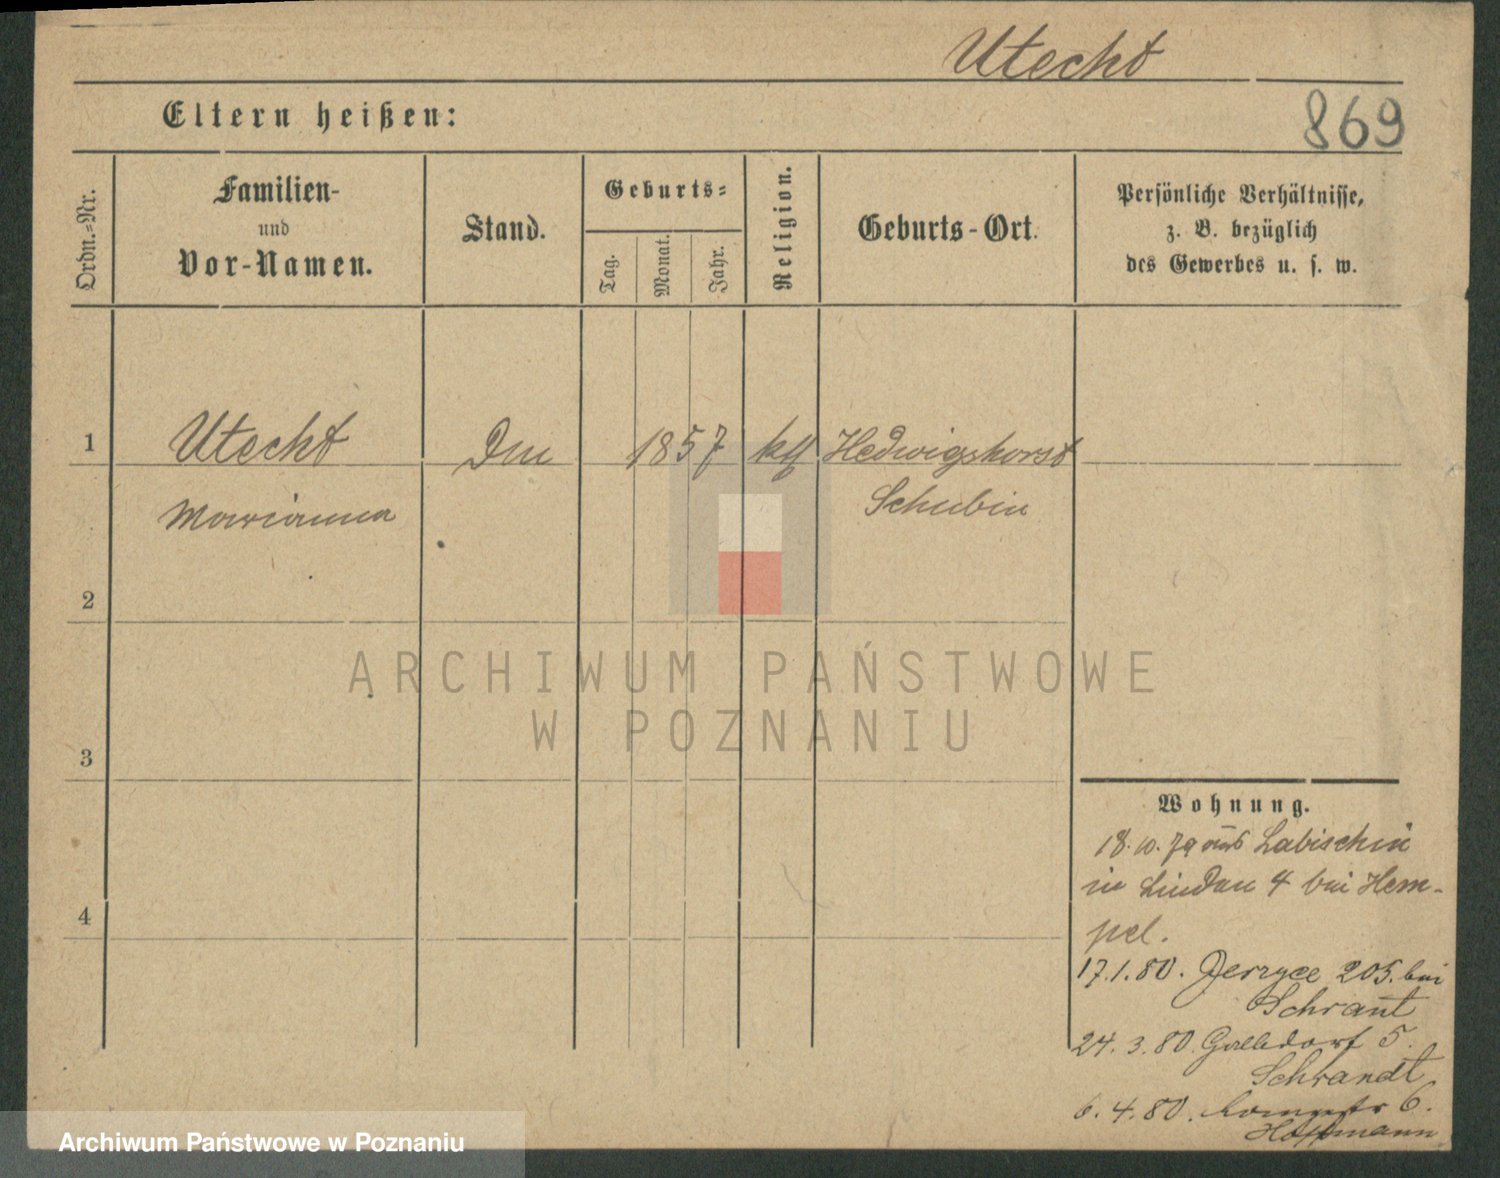 Utecht
Eltern heißen:
869
Ordn.=Nr.
Familien-
und
Vor-Namen.
Stand.
Geburts=
Tag.
Monat.
Jahr.
Religion.
Geburts-Ort.
Persönliche Verhältnisse,
z. B. bezüglich
des Gewerbes u. s. w.
1
Utecht
1857
Hedwigshorst
Marianna
Schubin
2
ARCHIWUM PAŃSTWOWE
W POZNANIU
3
Wohnung.
18.10.79 aus Labischin
in Lindau 4 bei Hem-
pel.
4
17.1.80. Jerzyce 205. bei
Schrant
24.3.80. 5.
Schrandt
6.4.80. 6.
Hoffmann
Archiwum Państwowe w Poznaniu